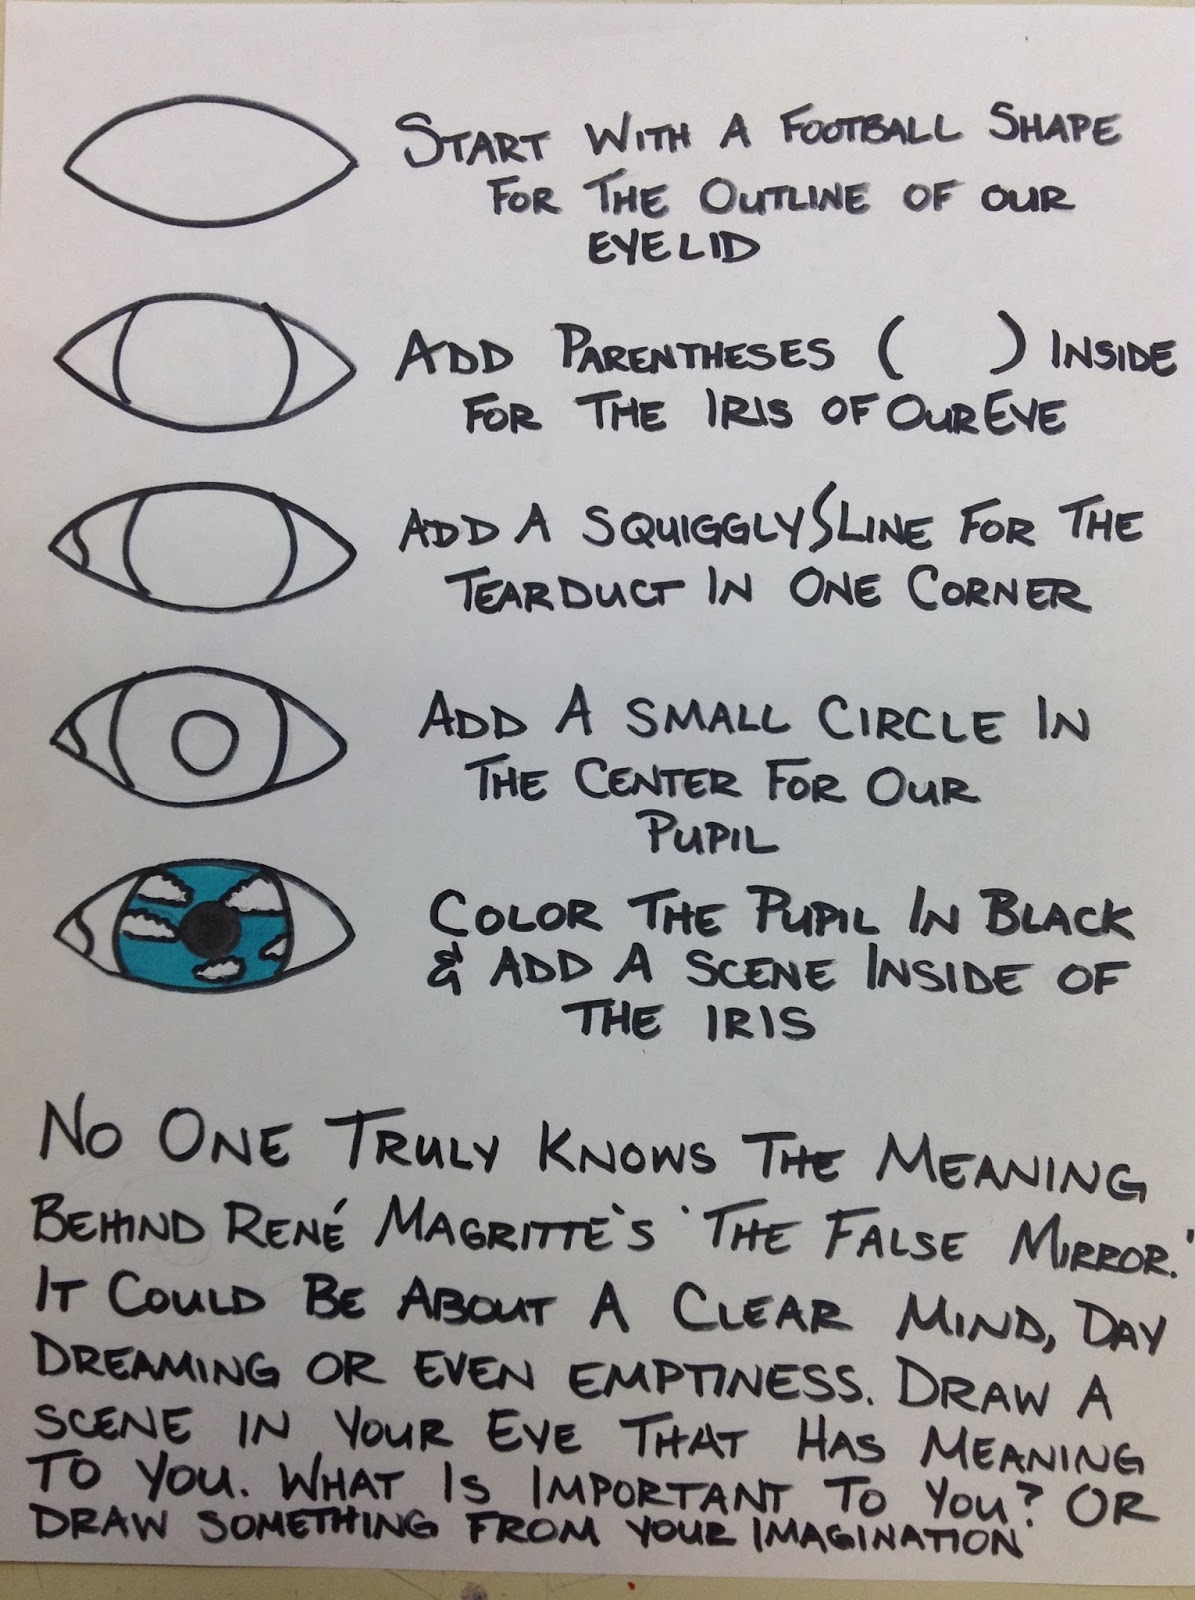 START WITH A FOOTBALL SHAPE
FOR THE OUTLINE OF OUR
EYELID
ADD PARENTHESES ( ) INSIDE
FOR THE IRIS OF OUR EYE
ADD A SQUIGGLY LINE FOR THE
TEARDUCT IN ONE CORNER
ADD A SMALL CIRCLE IN
THE CENTER FOR OUR
PUPIL
COLOR THE PUPIL IN BLACK
& ADD A SCENE INSIDE OF
THE IRIS
NO ONE TRULY KNOWS THE MEANING
BEHIND RENÉ MAGRITTE'S 'THE FALSE MIRROR.'
IT COULD BE ABOUT A CLEAR MIND, DAY
DREAMING OR EVEN EMPTINESS. DRAW A
SCENE IN YOUR EYE THAT HAS MEANING
TO YOU. WHAT IS IMPORTANT TO YOU? OR
DRAW SOMETHING FROM YOUR IMAGINATION